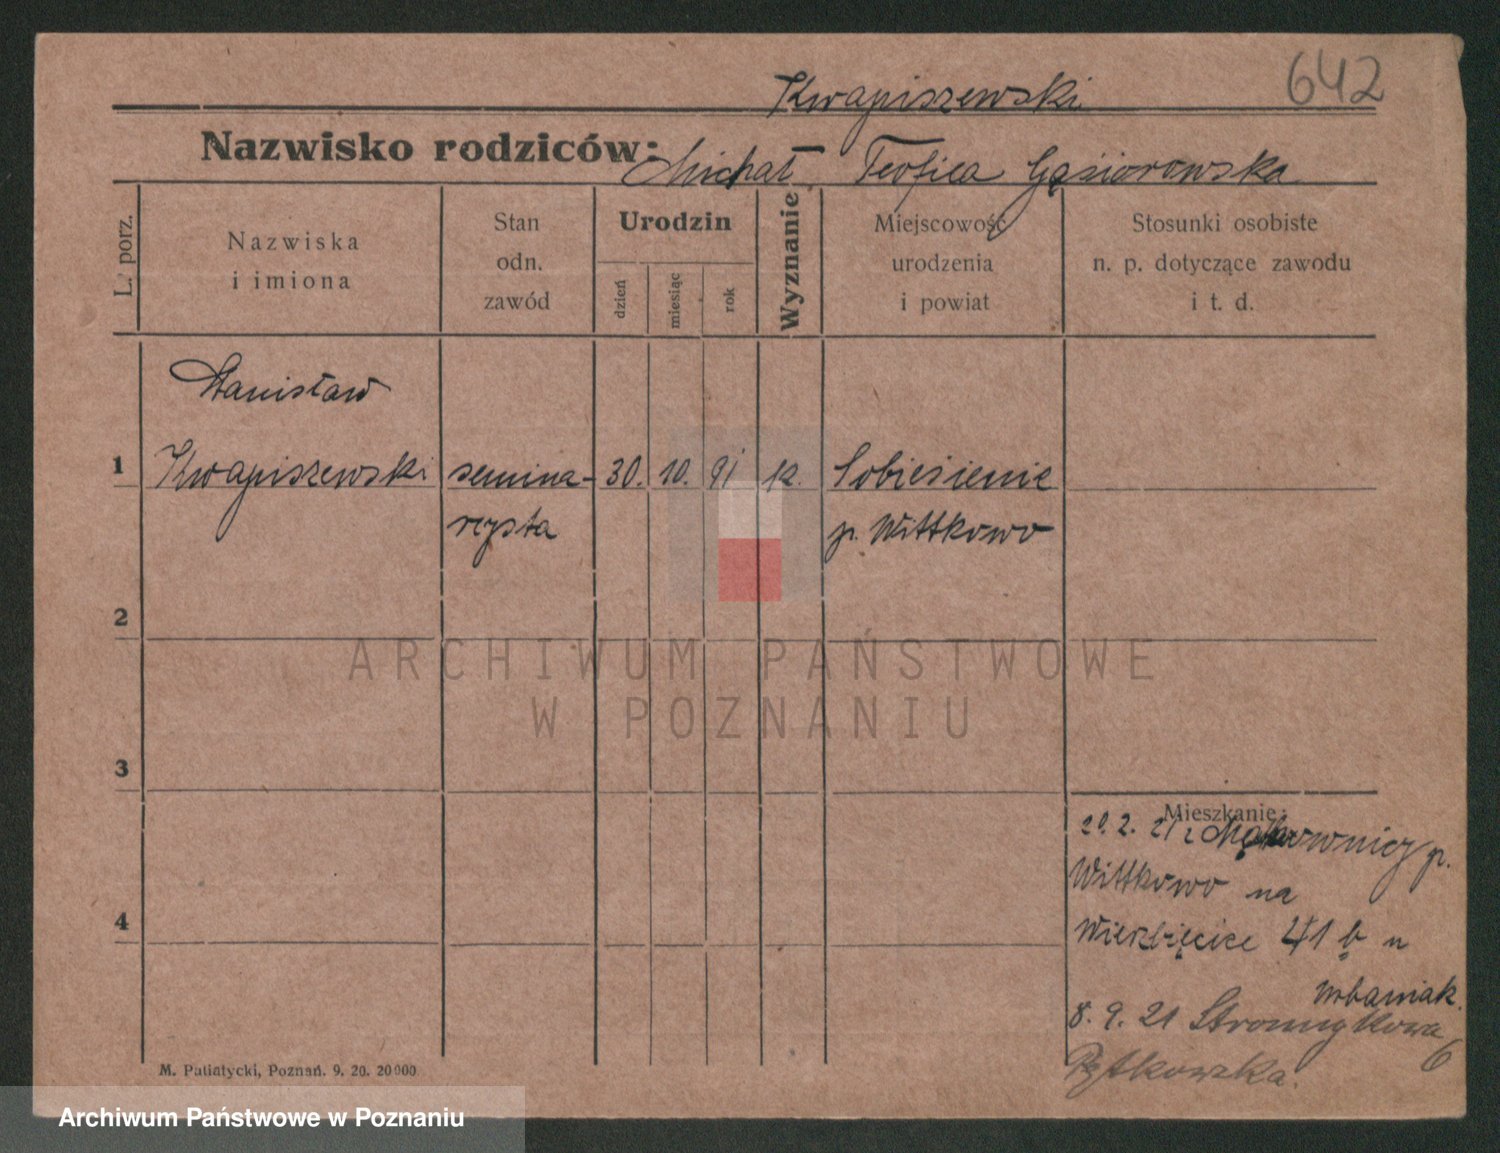 642
Kwapiszewski
Nazwisko rodziców: Michał Teofila Gąsiorowska
L. porz.
Nazwiska
i imiona
Stan
odn.
zawód
Urodzin
dzień
miesiąc
rok
Wyznanie
Miejscowość
urodzenia
i powiat
Stosunki osobiste
n. p. dotyczące zawodu
i t. d.
Stanisław
1 Kwapiszewski semina- 30. 10. 91 k. Sobiesienie
rzysta p. Wittkowo
2
3
4
Mieszkanie:
20.2.21 z p.
Wittkowo na
Wierzbięcice 41 b u
Urbaniak.
8.9.21 Stromykowa
6
M. Putiatycki, Poznań. 9. 20. 20000
ARCHIWUM PAŃSTWOWE
W POZNANIU
Archiwum Państwowe w Poznaniu